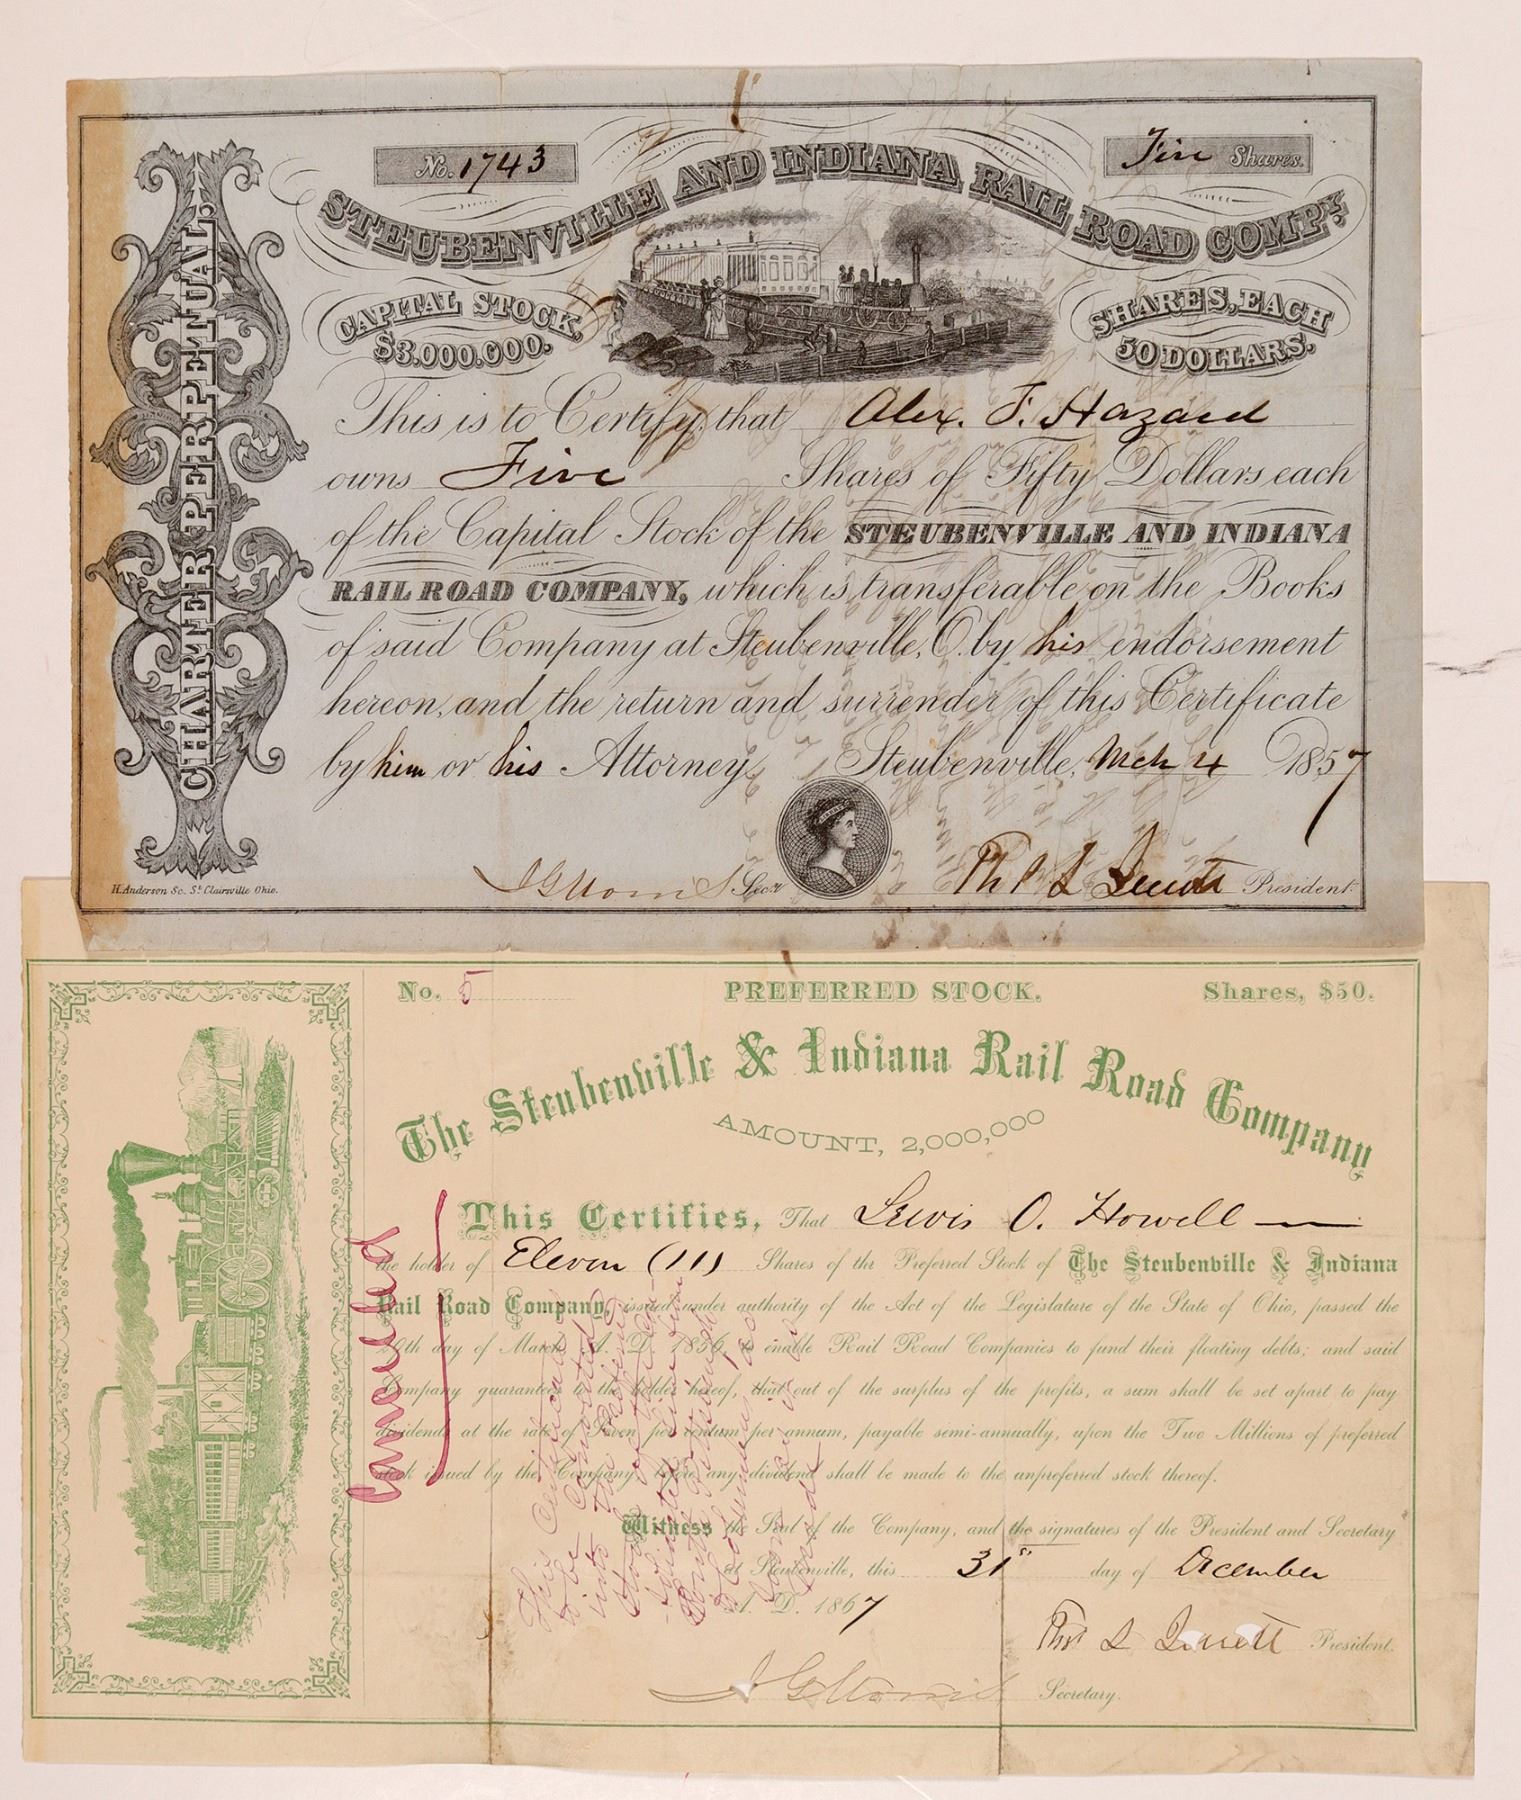 No. 1743
Five Shares.
STEUBENVILLE AND INDIANA RAIL ROAD COMPY.
CAPITAL STOCK,
$3.000.000.
SHARES, EACH
50 DOLLARS.
CHARTER PERPETUAL.
This is to Certify, that Alex. F. Hazard
owns Five Shares of Fifty Dollars each
of the Capital Stock of the STEUBENVILLE AND INDIANA
RAIL ROAD COMPANY, which is transferable on the Books
of said Company at Steubenville, O. by his endorsement
hereon, and the return and surrender of this Certificate
by him or his Attorney Steubenville, Mch 4 1857
J G Morris Secy
President.
H. Anderson Sc. St. Clairsville Ohio.
No. 5
PREFERRED STOCK.
Shares, $50.
The Steubenville & Indiana Rail Road Company
AMOUNT, 2,000,000
This Certifies, That Lewis O. Howell
the holder of Eleven (11) Shares of the Preferred Stock of The Steubenville & Indiana
Rail Road Company, issued under authority of the Act of the Legislature of the State of Ohio, passed the
day of March A. D. 1856, to enable Rail Road Companies to fund their floating debts; and said
Company guarantees to the holder hereof, that out of the surplus of the profits, a sum shall be set apart to pay
dividends at the rate of Seven per centum per annum, payable semi-annually, upon the Two Millions of preferred
stock issued by the Company, before any dividend shall be made to the unpreferred stock thereof.
Witness the Seal of the Company, and the signatures of the President and Secretary
at Steubenville, this 31st day of December
A. D. 1867
President.
J G Morris Secretary.
Cancelled
This Certificate
to be Converted
into the
Stock of the